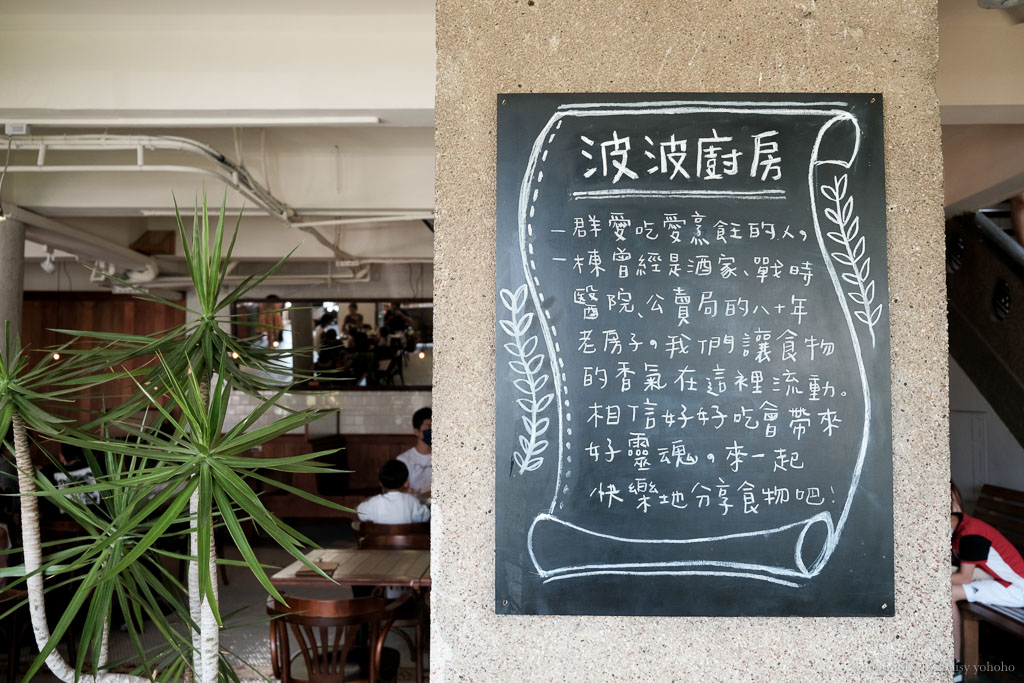 波波廚房
一群愛吃愛烹飪的人,
一棟曾經是酒家、戰時
醫院、公賣局的八十年
老房子。我們讓食物
的香氣在這裡流動。
相信好好吃會帶來
好靈魂。來一起
快樂地分享食物吧!
yohoho